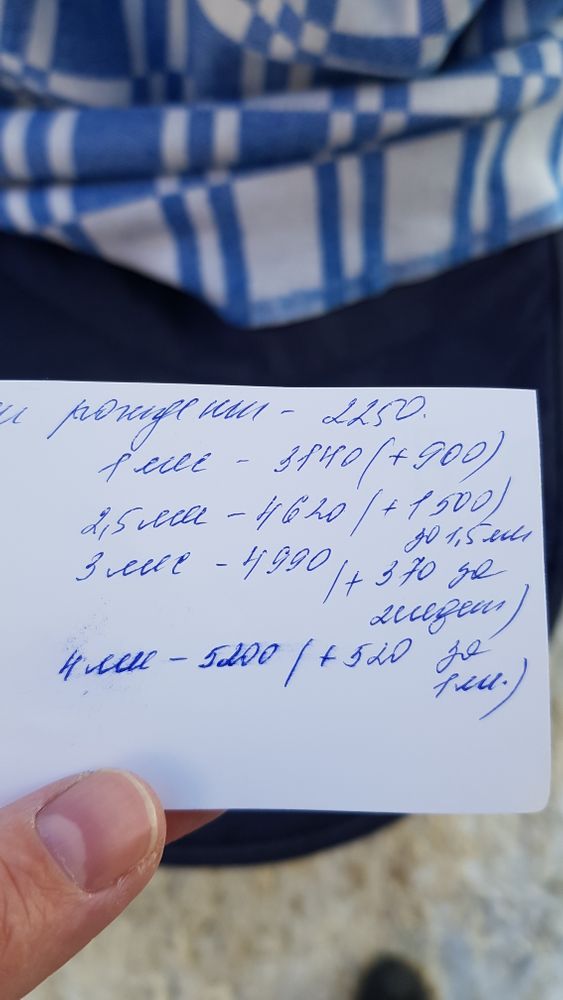 рождении - 2250.
1 мес - 3140 (+900)
2,5 мес - 4620 (+1500)
за 1,5 мес
3 мес - 4990 (+ 370 за
2 недели)
4 мес - 5200 (+520 за
1 м.)